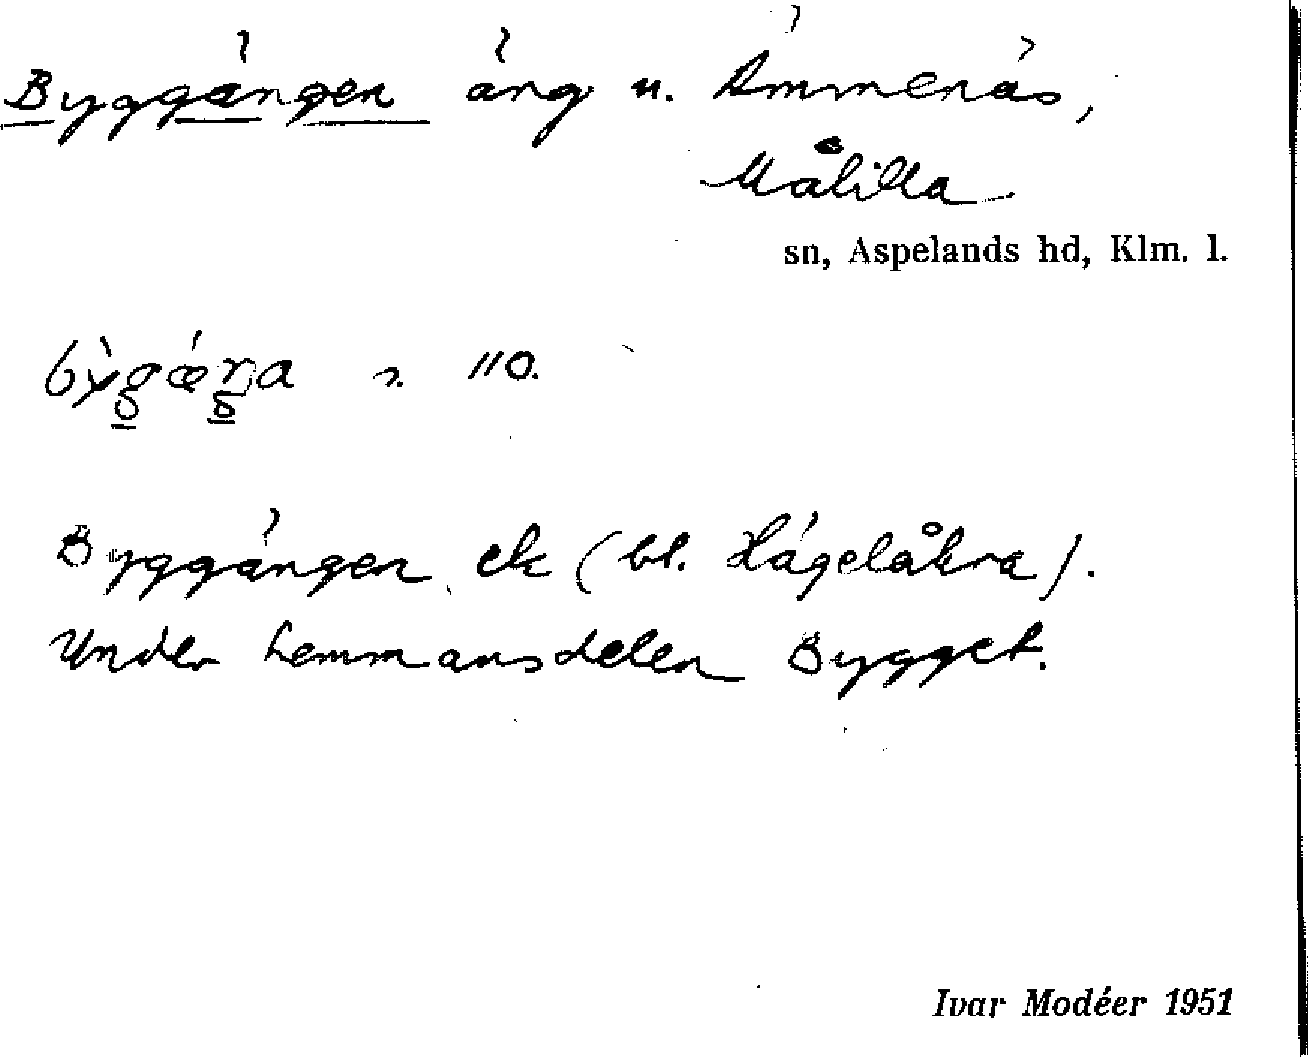 Byggängen äng u. Ämmenäs,
Målilla
sn, Aspelands hd, Klm. l.
bỳgǽŋa n. 110.
Byggängen ek (bl. Hägelåkra).
Under hemmansdelen Bygget.
Ivar Modéer 1951